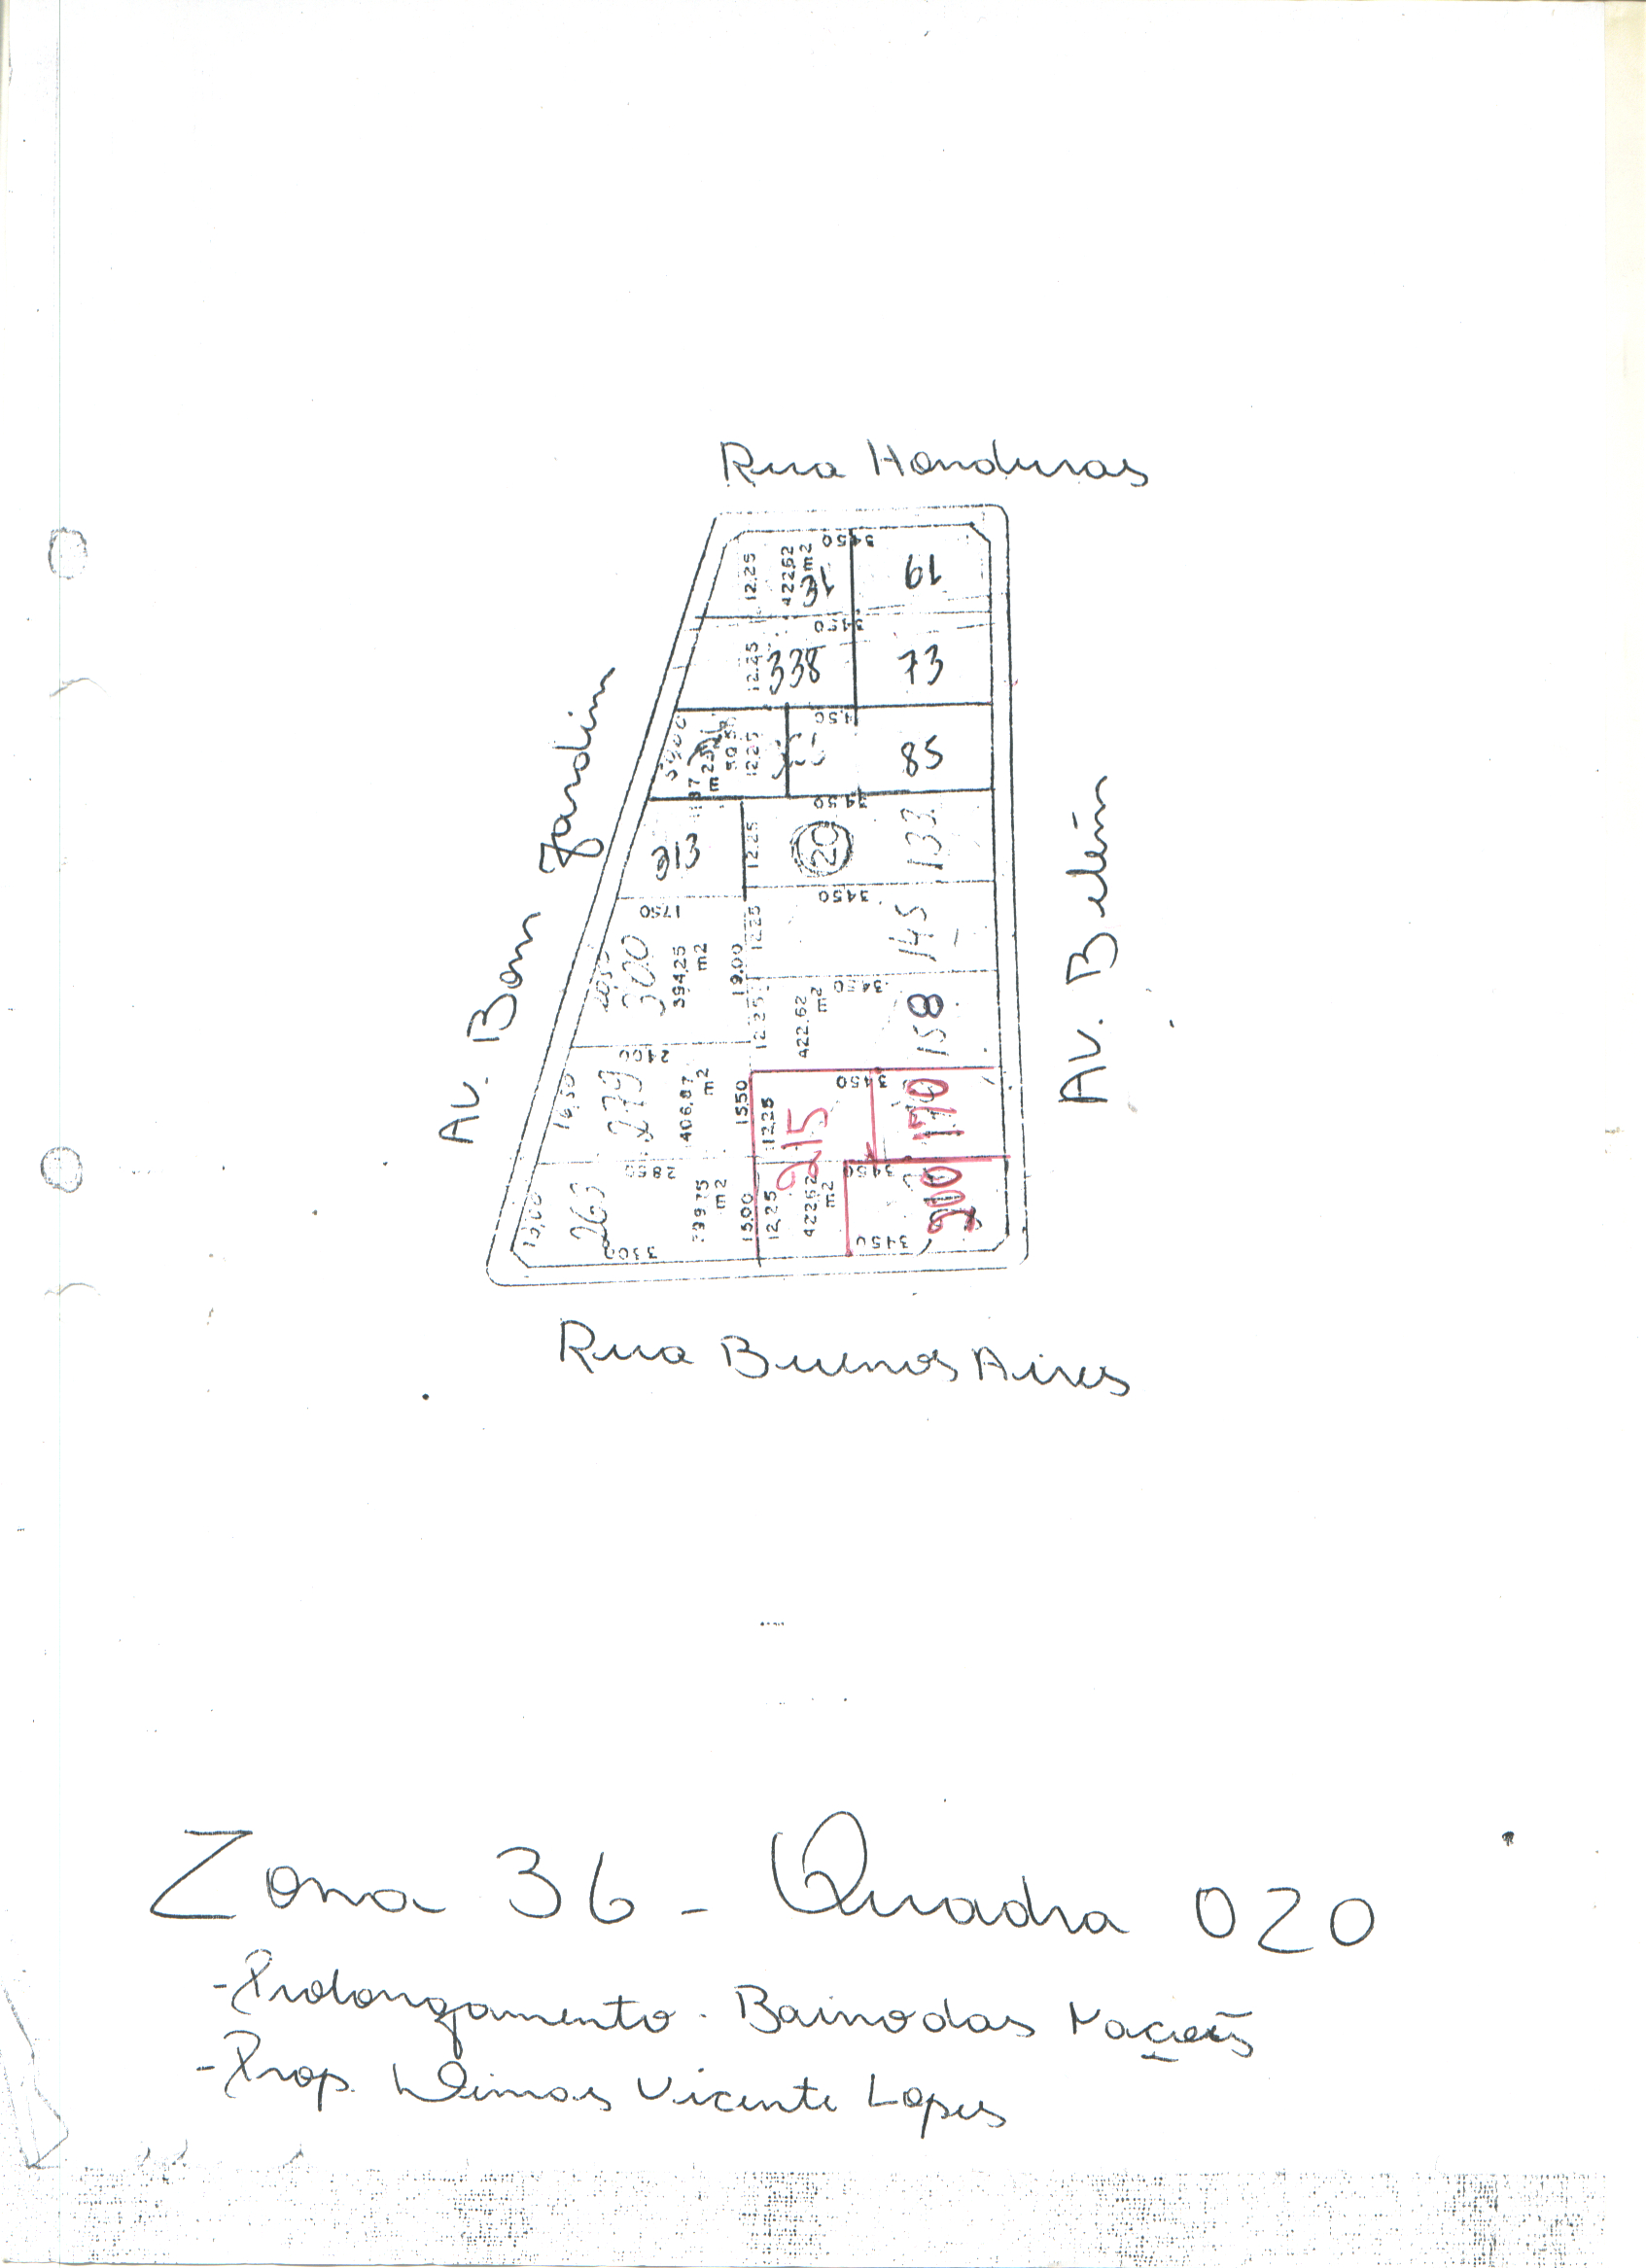 Rua Honduras
Av. Bom Jardim
Av. Belém
3450
12.25
422,62
m2
61
3450
12.25
338
73
4,50
12.25
85
3450
313
12.25
20
133
3450
1750
300
394,25
m2
19.00
12.25
145
12.25
422.62
m2
158
2400
16,50
279
406,87
m2
15.50
3450
12.25
215
170
2850
15,00
263
m2
15.00
12.25
422,62
m2
3450
200
3300
3450
Rua Buenos Aires
Zona 36 - Quadra 020
- Prolongamento. Bairro das Nações
- Prop. Dimas Vicente Lopes